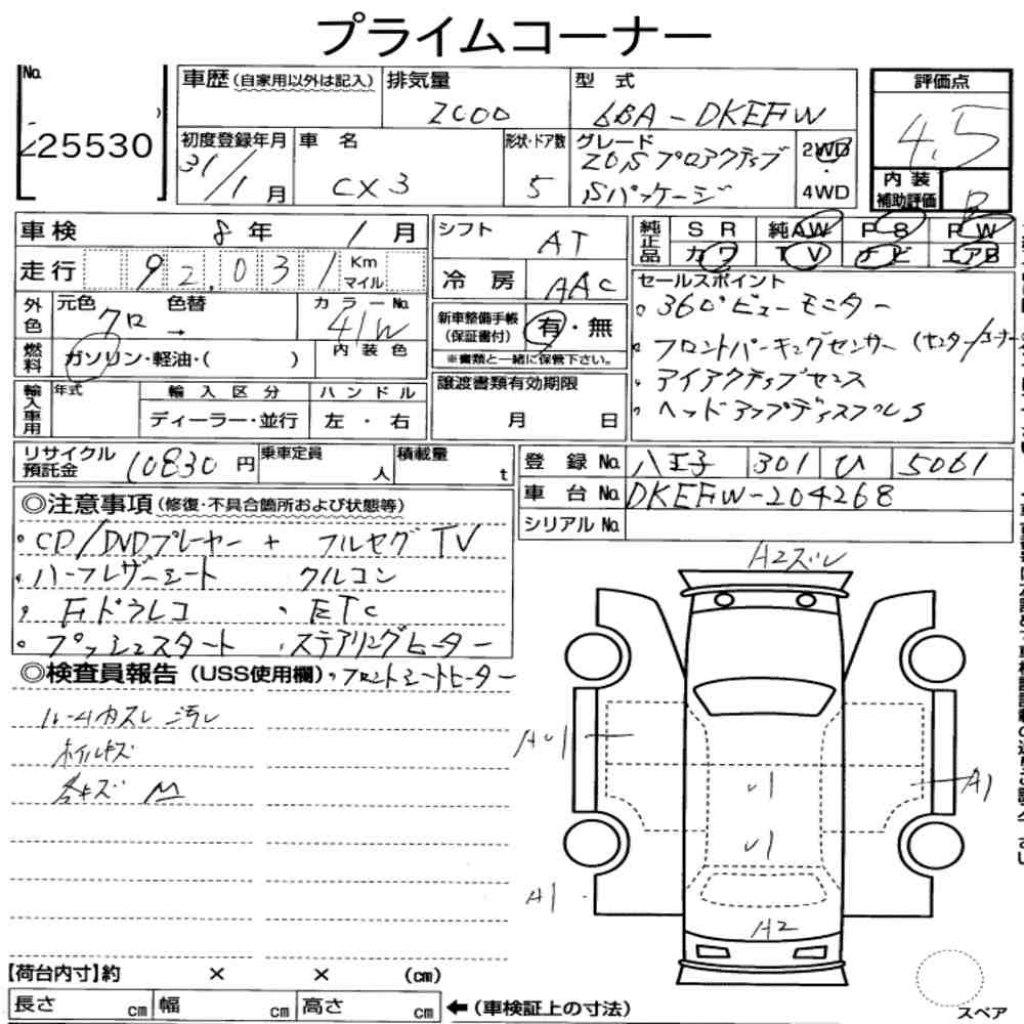 プライムコーナー
No.
25530
車歴(自家用以外は記入)
排気量
2000
型式
6BA-DKEFW
評価点
4.5
初度登録年月
31/1月
車名
CX3
形状・ドア数
5
グレード
20S プロアクティブ
Sパッケージ
2WD
4WD
内装
補助評価
B
車検
8年 1月
シフト
AT
純正品
SR 純AW PS PW
カワ TV ナビ エアB
走行
92,031
Km
マイル
冷房
AAC
セールスポイント
。360°ビューモニター
。フロントパーキングセンサー(センター/コーナー
・アイアクティブセンス
。ヘッドアップディスプレS
外色
元色
クロ
色替
→
カラーNo.
41W
新車整備手帳
(保証書付)
有・無
※書類と一緒に保管下さい。
燃料
ガソリン・軽油・( )
内装色
輸入車用
年式
輸入区分
ディーラー・並行
ハンドル
左・右
譲渡書類有効期限
月 日
リサイクル
預託金
10830円
乗車定員
人
積載量
t
登録No.
八王子 301 ひ 5061
車台No.
DKEFW-204268
シリアルNo.
◎注意事項(修復・不具合箇所および状態等)
。CD/DVDプレーヤー + フルセグTV
・ハーフレザーシート クルコン
・ 純ドラレコ ・ETC
。プッシュスタート ・ステアリングヒーター
◎検査員報告(USS使用欄)
。フロントシートヒーター
ルームカスレ 汚レ
ホイルキズ
各キズ M
A2ズレ
AU1
U1
A1
U1
A1
A2
【荷台内寸】約 × × (cm)
長さ cm 幅 cm 高さ cm ←(車検証上の寸法)
スペア